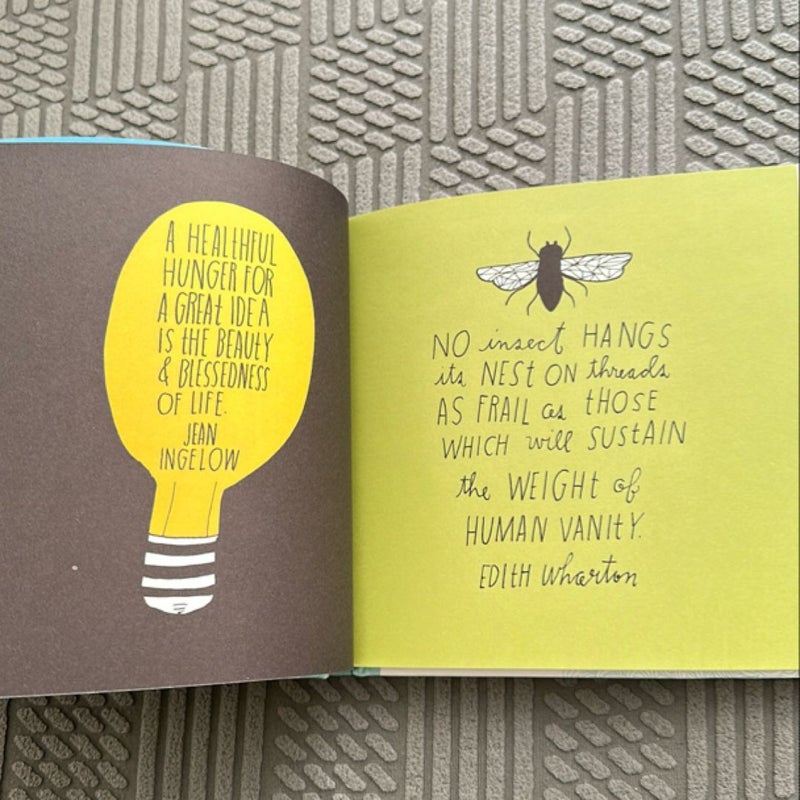 A HEALTHFUL
HUNGER FOR
A GREAT IDEA
IS THE BEAUTY
& BLESSEDNESS
OF LIFE.
JEAN
INGELOW
NO insect HANGS
its NEST ON threads
AS FRAIL as THOSE
WHICH will SUSTAIN
the WEIGHT of
HUMAN VANITY.
EDITH Wharton